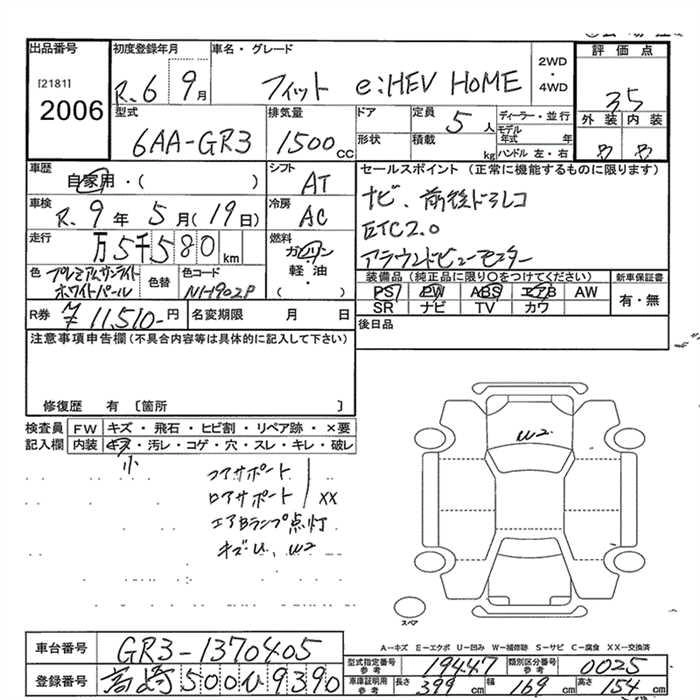 出品番号 初度登録年月 車名・グレード 2WD・4WD 評価点
[2181] 2006 R.6 9月 フィット e:HEV HOME 3.5
型式 排気量 ドア 定員 5人 ディーラー・並行 外装 内装
6AA-GR3 1500cc 形状 積載 kg モデル年式 年 ハンドル 左・右
車歴 シフト セールスポイント (正常に機能するものに限ります)
自家用・( ) AT ナビ、前後ドラレコ
車検 R.9年5月(19日) 冷房 AC ETC2.0
走行 万5千580km 燃料 ガソリン・軽油・( ) アラウンドビューモニター
色 プレミアムサンライトホワイトパール 色替 色コード NH-902P 装備品 (純正品に限り○をつけてください) 新車保証書
PS PW ABS エアB AW 有・無
SR ナビ TV カワ
R券 ¥11,510-円 名変期限 月 日 後日品
注意事項申告欄(不具合内容等は具体的に記入して下さい)
修復歴 有 〔箇所 〕
検査員記入欄 FW キズ・飛石・ヒビ割・リペア跡・×要
内装 キズ・汚レ・コゲ・穴・スレ・キレ・破レ
小
コアサポート
ロアサポート XX
エアBランプ点灯
キズU、W2
W2
スペア
A-キズ E-エクボ U-凹み W-補修跡 S-サビ C-腐食 XX-交換済
車台番号 GR3-1370405
型式指定番号 参考 19447 類別区分番号 参考 0025
登録番号 高崎500い9390
車庫証明用 参考 長さ 399cm 幅 169cm 高さ 154cm